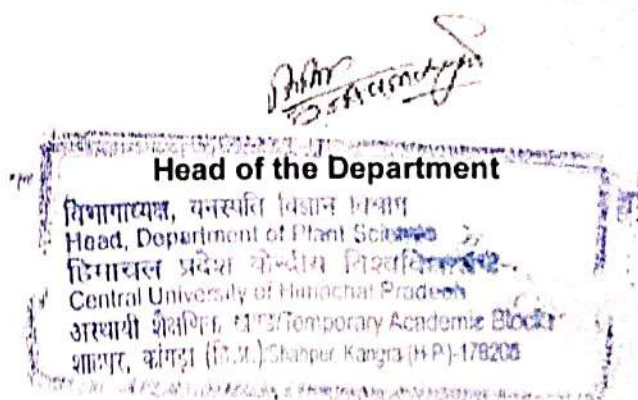 Head of the Department
विभागाध्यक्ष, वनस्पति विज्ञान विभाग
Head, Department of Plant Sciences
हिमाचल प्रदेश केन्द्रीय विश्वविद्यालय
Central University of Himachal Pradesh
अस्थायी शैक्षणिक खण्ड/Temporary Academic Block
शाहपुर, काँगड़ा (हि.प्र.) Shahpur, Kangra (H.P.)-176206